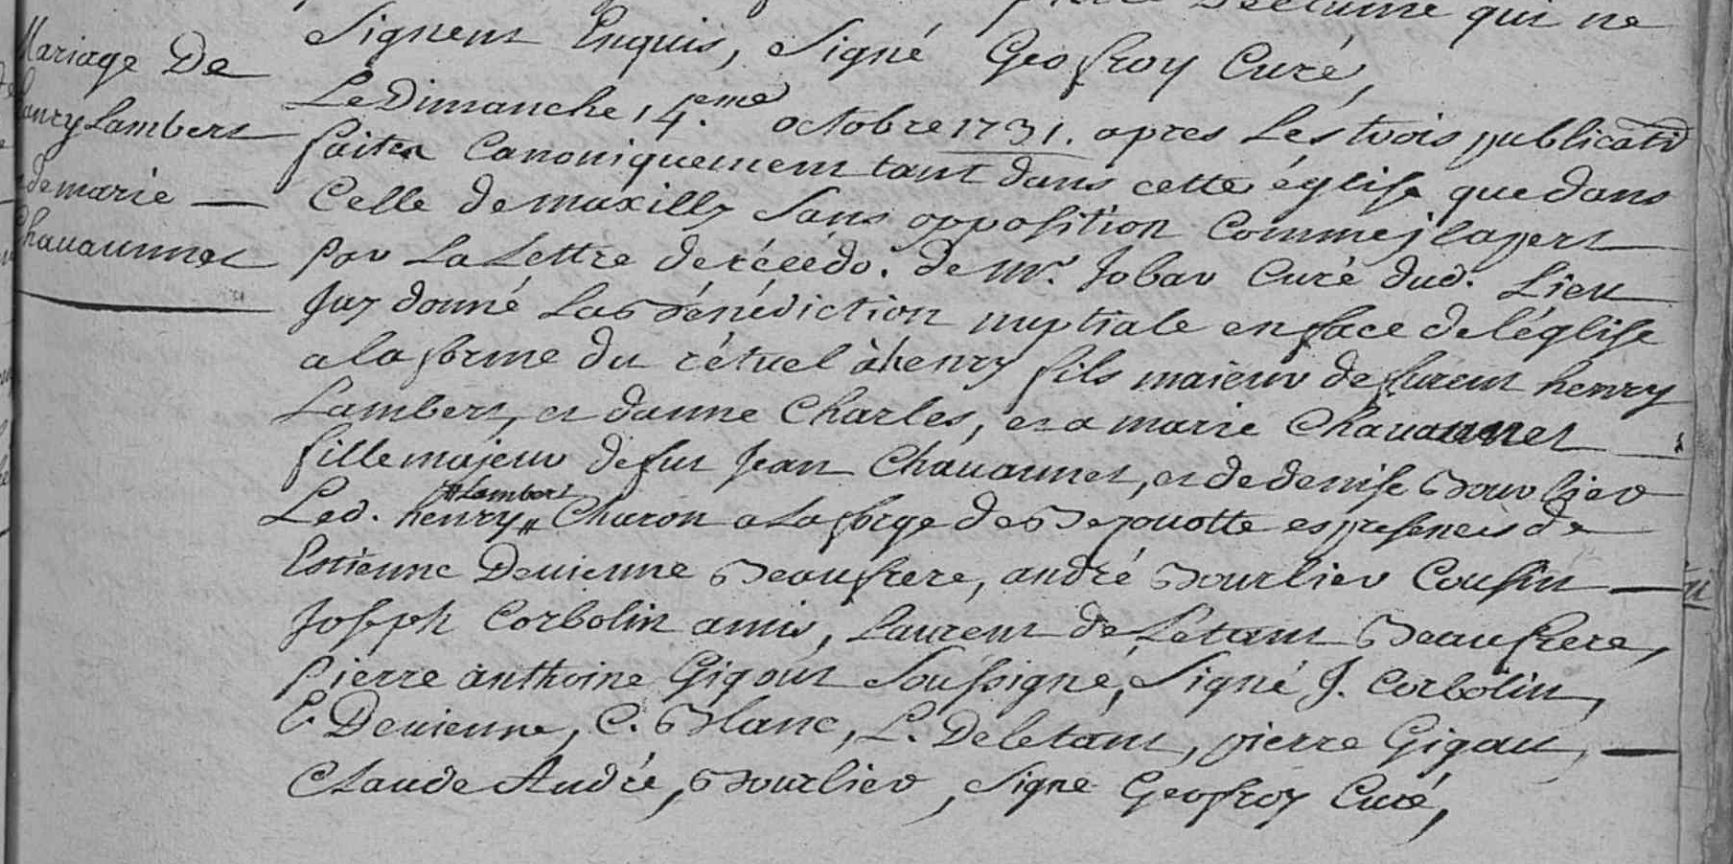 qui ne
Signent Enquis, Signé Geofroy Curé,
Mariage De
henry Lambert
de marie
Chauaunnet
Le Dimanche 14.eme octobre 1731. apres Les trois publicatio
faites Canoniquement tant dans cette église que dans
Celle de maxilly Sans opposition Comme jl apert
par La Lettre de récédo. de mr. Jobar Curé dud. Lieu
Jay donné La Bénédiction nuptiale en face de l'église
a la forme du rétuel à henry fils maieur de furent henry
Lambert, et danne Charles, et a marie Chauaunnet
fille majeur de fut Jean Chauaunnet, et de denise Bourlier
Led. henry Lambert Charon a La forge de Bezouotte es presences de
Estienne Deuienne Beaufrere, andré Bourlier Cousin
Joseph Corbolin amis, Laurent de Létant Beaufrere,
pierre anthoine Gigout Soussigne, Signé J. Corbolin,
E. Deuienne, C. Blanc, L. Deletant, pierre Gigout,
Claude André, Bourlier, Signe Geofroy Curé,